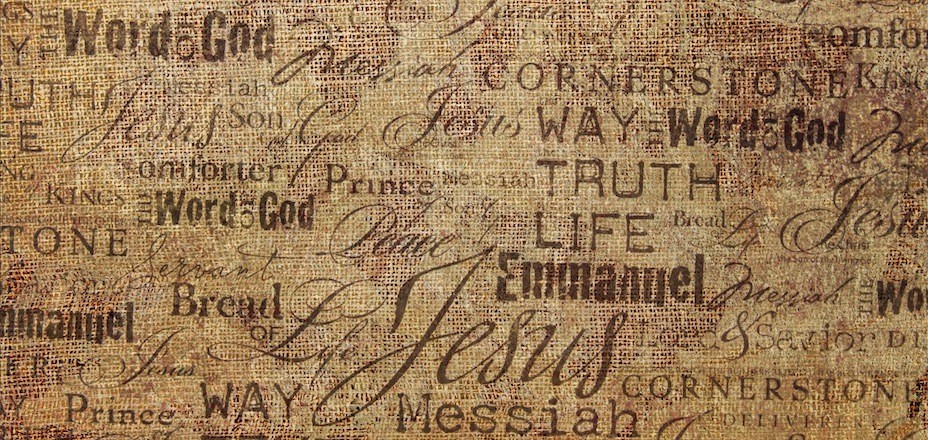 THE Word OF God
Messiah
comfor
CORNERSTONE
KINGS
Messiah
UTH
Jesus
Son
of God
Jesus
WAY
THE Word OF God
FE
omforter
Prince
Messiah
TRUTH
KINGS
THE Word OF God
Son of
Bread
Jesus
TONE
Peace
LIFE
Servant
Emmanuel
Messiah
THE Wo
Bread
OF
Life
Jesus
mmanuel
& Savior
Jesus
CORNERSTONE
Prince
WAY
Messiah
DELIVERER